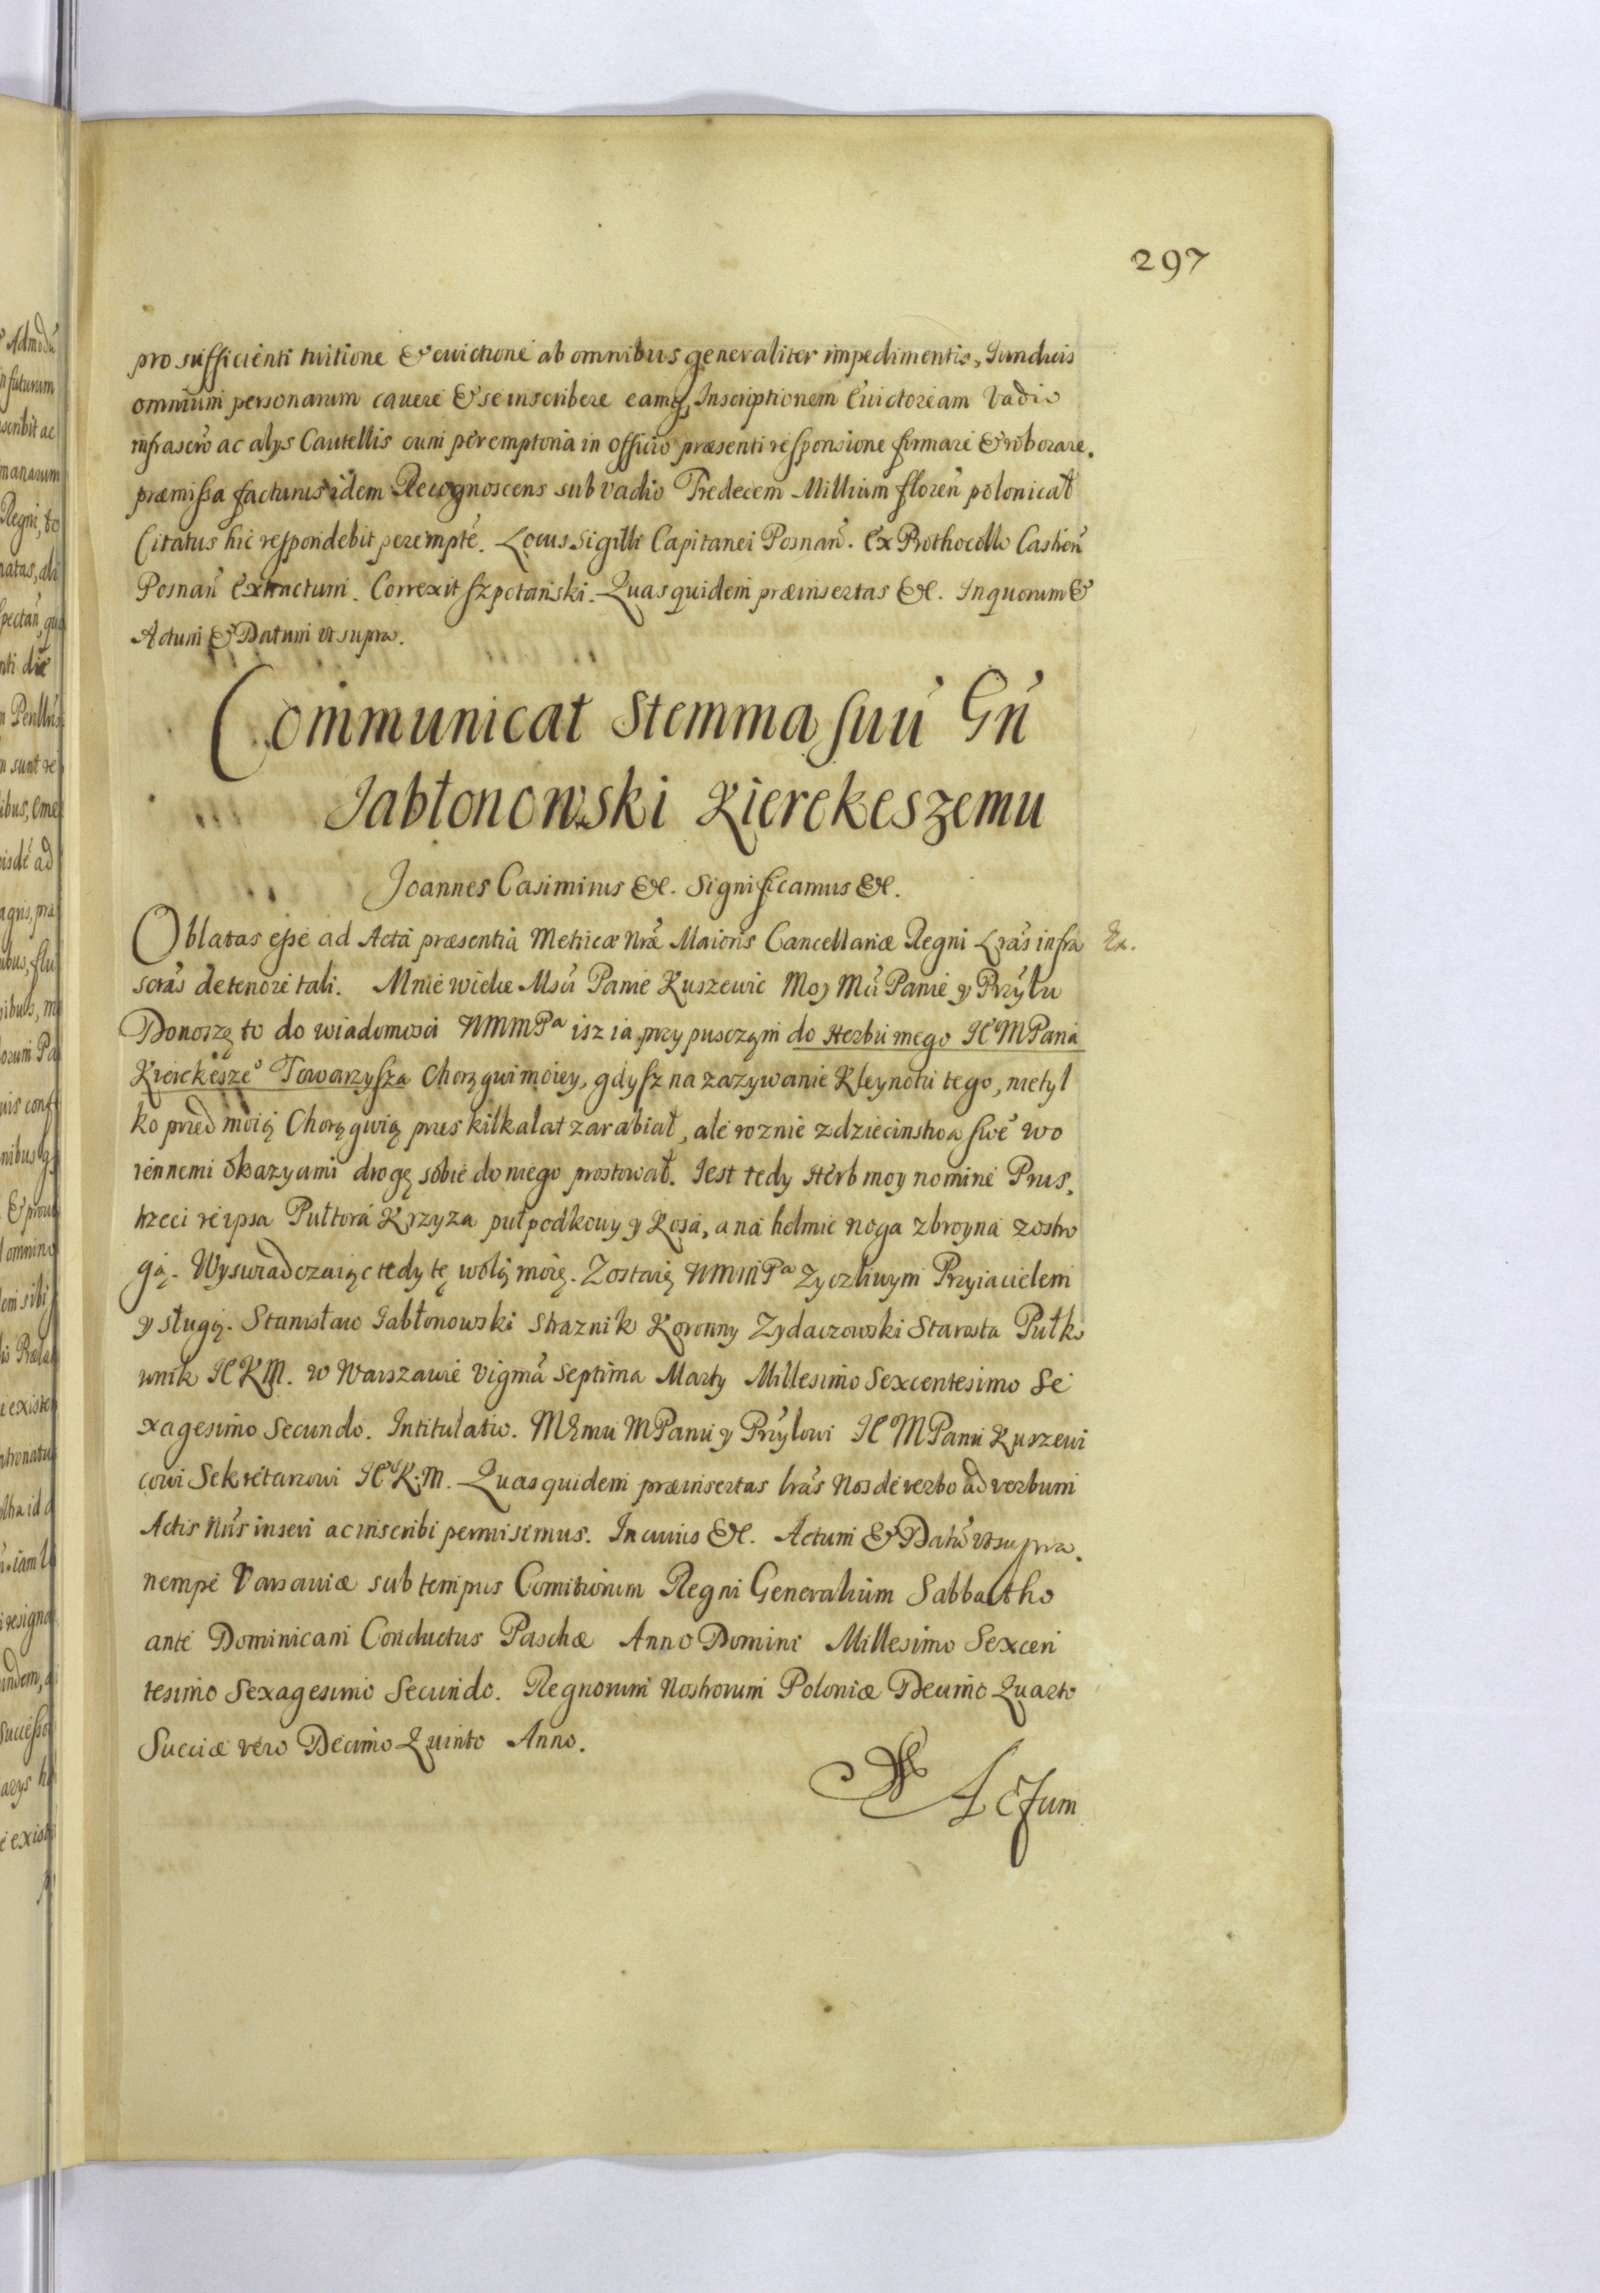 297
pro sufficienti tuitione & evictione ab omnibus generaliter impedimentis, Iuribuis
omnium personarum cavere & se inscribere eamq, Inscriptionem Evictoream Vadio
infrascro ac alys Cautellis cum peremptoria in officio præsenti responsione firmare & roborare.
præmissa facturus idem Recognoscens sub vadio Tredecem Millium floren polonical
Citatus hic respondebit perempte. Locus Sigilli Capitanei Posnan. Ex Prothocollo Castren
Posnan Extractum. Correxit Szpotański. Quas quidem præinsertas &c. In quorum &
Actum & Datum ut supra.
Communicat Stemma suu Gn
Jabłonowski Kierekeszemu
Joannes Casimirus &c. Significamus &c.
Oblatas esse ad Acta præsentia Metricæ Nræ Maioris Cancellariæ Regni Lras infra
scras de tenore tali. Mnie wielce Msci Panie Kuszewic Moy Mci Panie y Przylu
Donoszę to do wiadomosci WMMPa isz ia przypusczem do Herbu mego IeMPana
Kierekesze Towarzysza Chorągwi moiey, gdysz na zazywanie Kleynotu tego, nietyl
ko pzed moią Chorągwią przes kilka lat zarabiał, ale roznie z dziecinstwa swe wo
iennemi okazyami drogę sobie do niego prostował. Iest tedy Herb moy nomine Prus,
trzeci reipsa Pułtora Krzyza puł podkowy y Kosa, a na hełmie noga zbroyna z ostro
gą. Wyswiadczaiąc tedy tę wolą moię. Zostaię WMMPa Zyczliwym Przyiacielem
y sługą. Stanisław Iabłonowski Straznik Koronny Zydaczowski Starosta Pułko
wnik IEKM. w Warszawie vigma Septima Marty Millesimo Sexcentesimo Se
xagesimo Secundo. Intitulatio. MEmu MPanu y Przylowi IEMPanu Kuszewi
cowi Sekretarzowi IEK.M. Quas quidem præinsertas lras Nos de verbo ad verbum
Actis Nris inseri ac inscribi permisimus. In cuius &c. Actum & Datu ut supra.
nempe Varsaviæ sub tempus Comitiorum Regni Generalium Sabbatho
ante Dominicam Conductus Paschæ Anno Domini Millesimo Sexcen
tesimo Sexagesimo Secundo. Regnorum Nostrorum Poloniæ Decimo Quarto
Sueciæ vero Decimo Quinto Anno.
Actum